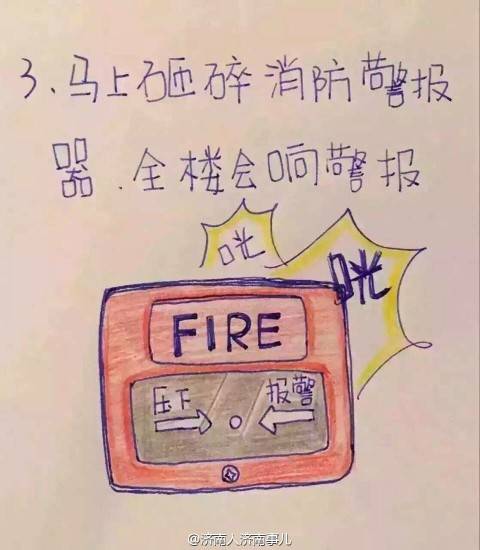 3、马上砸碎消防警报
器.全楼会响警报
咣
咣
FIRE
压下 报警
@济南人济南事儿